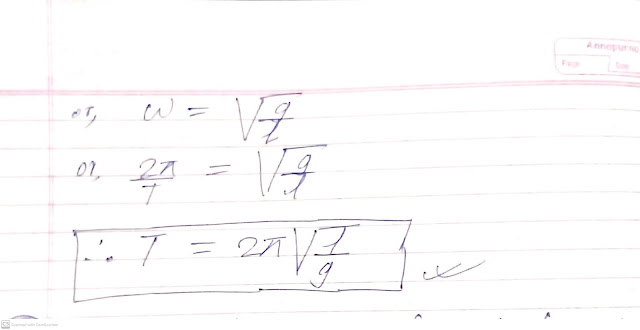 Annapurna
Page
Date
or, ω = √(g/l)
or, 2π/T = √(g/l)
∴ T = 2π√(l/g)
Scanned with CamScanner